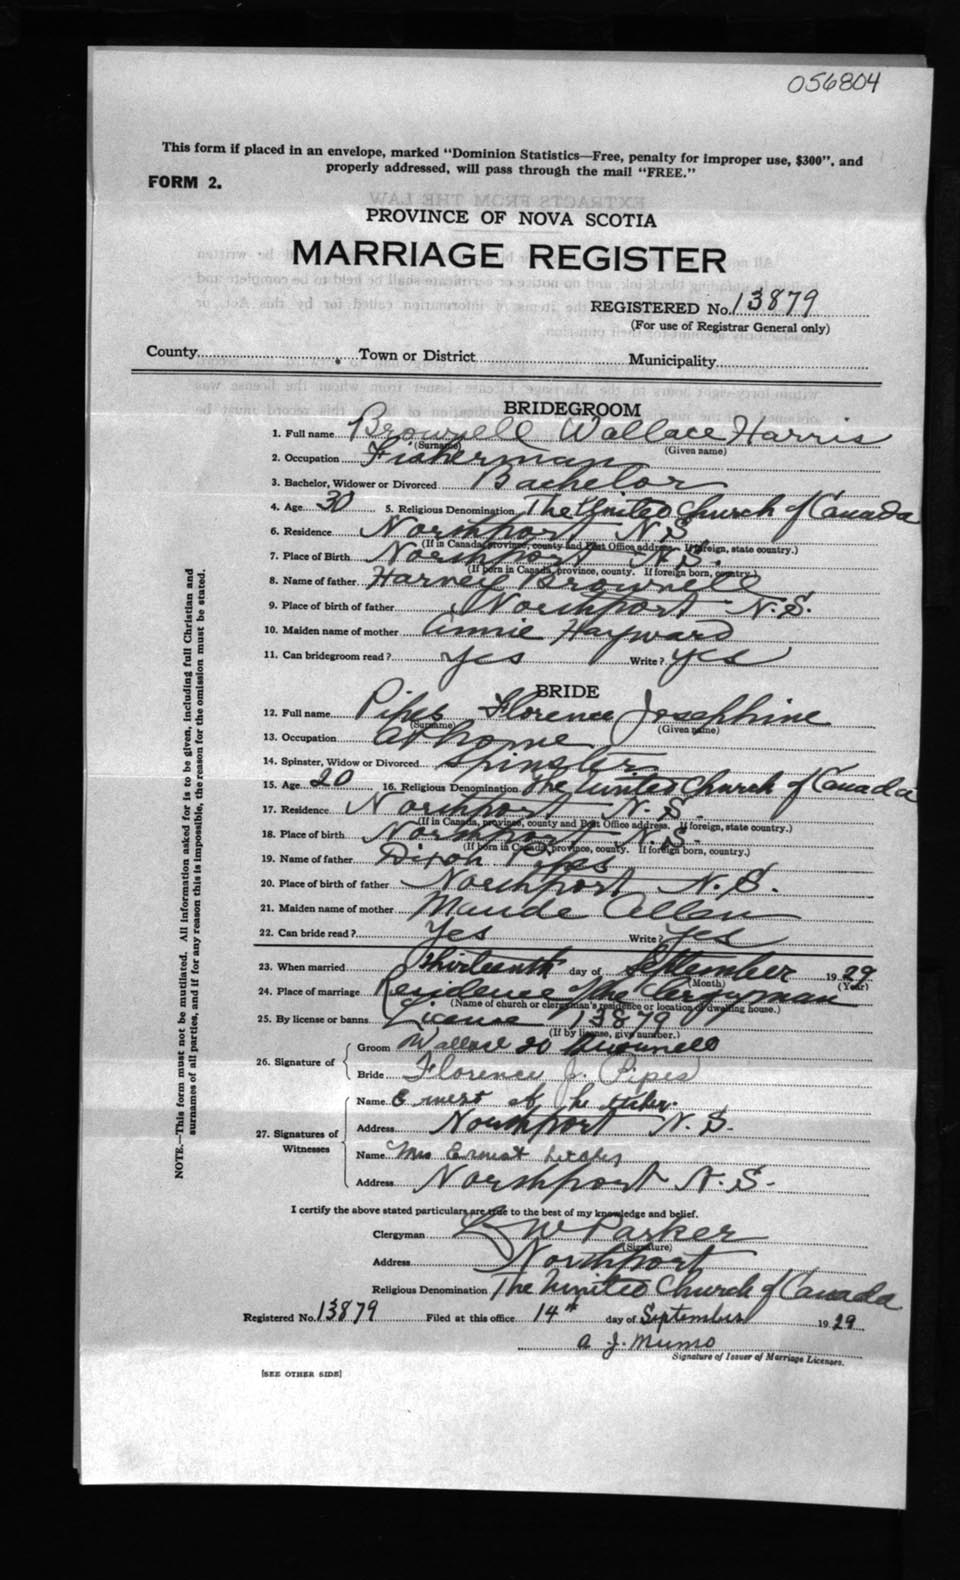 056804
This form if placed in an envelope, marked "Dominion Statistics—Free, penalty for improper use, $300", and
properly addressed, will pass through the mail "FREE."
FORM 2.
PROVINCE OF NOVA SCOTIA
MARRIAGE REGISTER
REGISTERED No. 13879
(For use of Registrar General only)
County Town or District Municipality
BRIDEGROOM
1. Full name Brownell Wallace Harris
(Surname) (Given name)
2. Occupation Fisherman
3. Bachelor, Widower or Divorced Bachelor
4. Age 30 5. Religious Denomination The United Church of Canada
6. Residence Northport N.S.
(If in Canada, province, county and Post Office address. If foreign, state country.)
7. Place of Birth Northport N.S.
(If born in Canada, province, county. If foreign born, country.)
8. Name of father Harvey Brownell
9. Place of birth of father Northport N.S.
10. Maiden name of mother Annie Hayward
11. Can bridegroom read? Yes Write? Yes
BRIDE
12. Full name Pipes Florence Josephine
(Surname) (Given name)
13. Occupation At home
14. Spinster, Widow or Divorced Spinster
15. Age 20 16. Religious Denomination The United Church of Canada
17. Residence Northport N.S.
(If in Canada, province, county and Post Office address. If foreign, state country.)
18. Place of birth Northport N.S.
(If born in Canada, province, county. If foreign born, country.)
19. Name of father Dixon Pipes
20. Place of birth of father Northport N.S.
21. Maiden name of mother Maude Allan
22. Can bride read? Yes Write? Yes
23. When married Thirteenth day of September 1929
(Month) (Year)
24. Place of marriage Residence of the Clergyman
(Name of church or clergyman's residence or location of dwelling house.)
25. By license or banns License 13879
(If by license, give number.)
26. Signature of Groom Wallace Brownell
Bride Florence J. Pipes
27. Signatures of Witnesses
Name Ernest
Address Northport N.S.
Name Mrs Ernest
Address Northport N.S.
I certify the above stated particulars are true to the best of my knowledge and belief.
Clergyman W Parker
(Signature)
Address Northport
Religious Denomination The United Church of Canada
Registered No. 13879 Filed at this office 14th day of September 1929
A J. Munro
Signature of Issuer of Marriage Licenses.
[SEE OTHER SIDE]
NOTE.—This form must not be mutilated. All information asked for is to be given, including full Christian and
surnames of all parties, and if for any reason this is impossible, the reason for the omission must be stated.